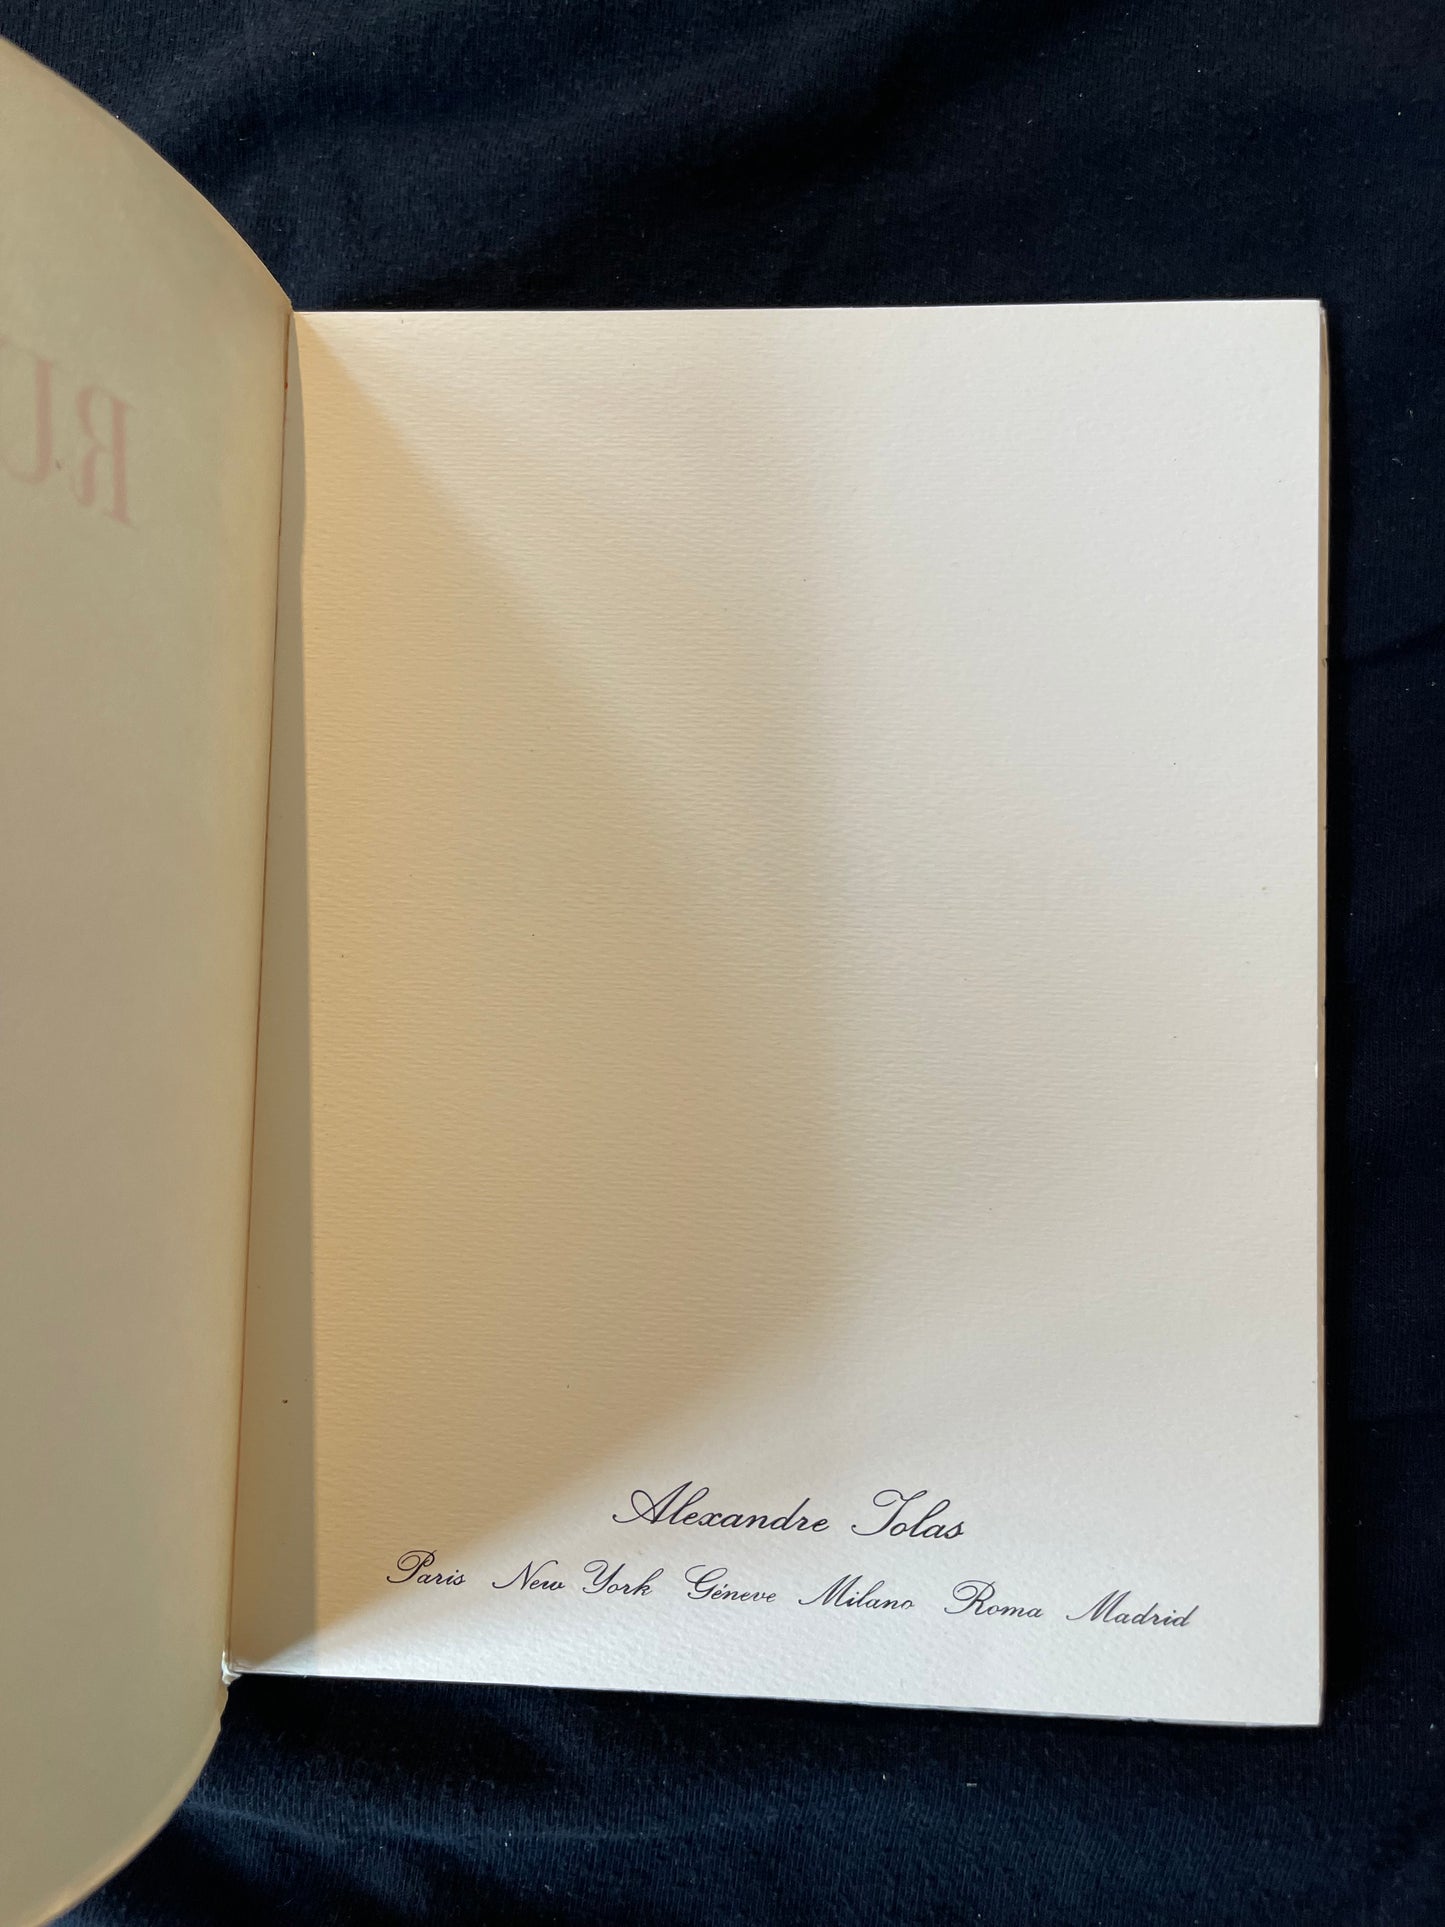 RU
Alexandre Iolas
Paris New York Géneve Milano Roma Madrid